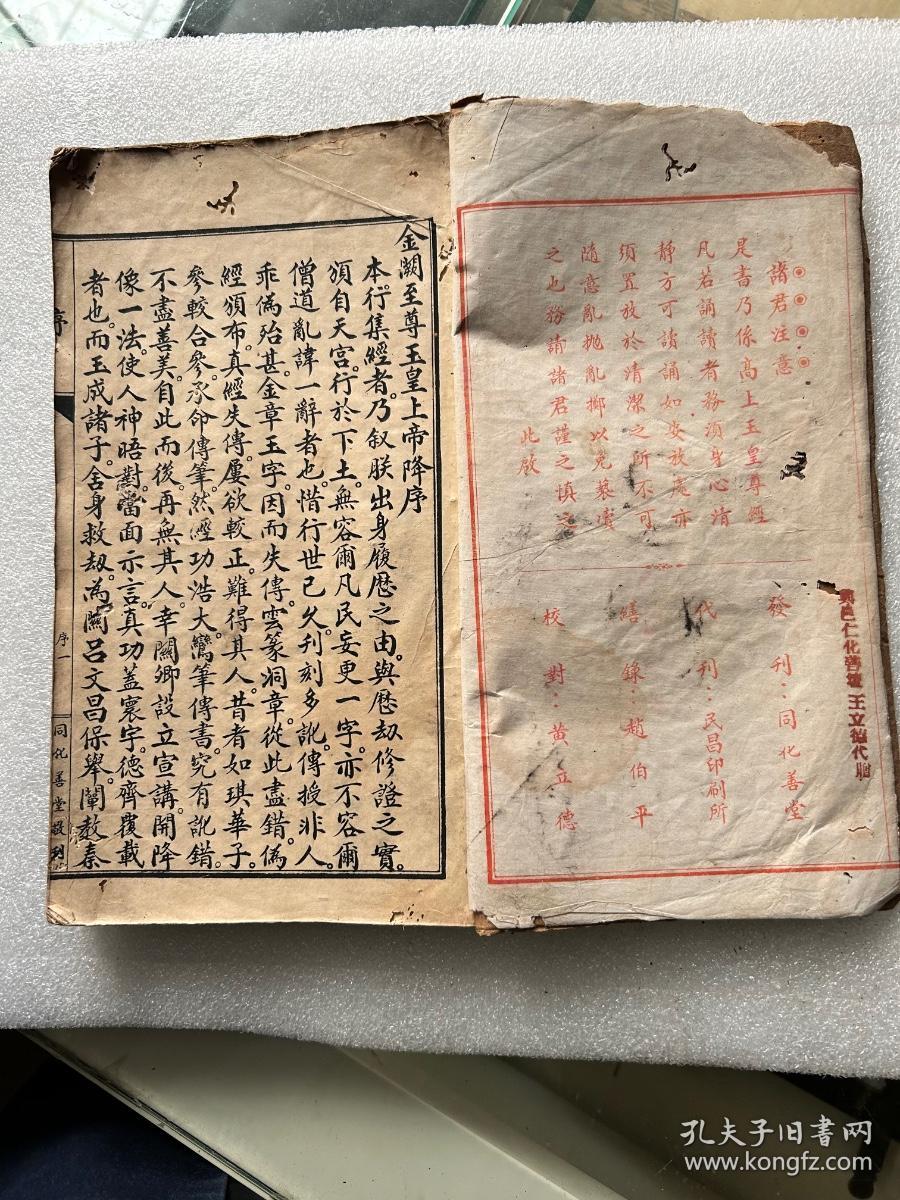 諸君注意
是書乃係高上玉皇尊經
凡若誦讀者務須身心清
靜方可讀誦如安放處亦
須置放於清潔之所不可
隨意亂拋亂擲以免褻瀆
之也務請諸君謹之慎之
此啟
發刊：同化善堂
代刊：民昌印刷所
繕錄：趙伯平
校對：黃立德
邑仁化善壇王文德代
金闕至尊玉皇上帝降序
本行集經者。乃叙朕出身履歷之由。與歷劫修證之實。
頒自天宮。行於下土。無容爾凡民妄更一字。亦不容爾
僧道亂諱一辭者也。惜行世已久。刊刻多訛。傳授非人。
乖偽殆甚。金章玉字。因而失傳。雲篆洞章。從此盡錯。偽
經頒布。真經失傳。屢欲較正。難得其人。昔者如琪華子。
參較合參。承命傳筆。然經功浩大。鸞筆傳書。究有訛錯。
不盡善美。自此而後。再無其人。幸闕卿設立宣講。開降
像一法。使人神晤對。當面示言。真功蓋寰宇。德齊覆載
者也。而玉成諸子。舍身救劫。為關呂文昌保舉。闡教秦
序
序一
同化善堂敬刊
孔夫子旧书网
www.kongfz.com